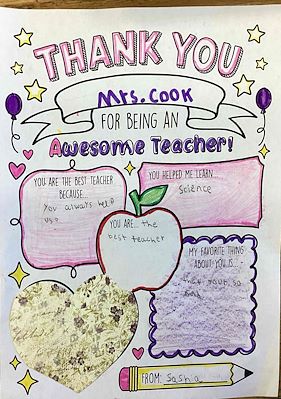 THANK YOU
Mrs. Cook
FOR BEING AN
Awesome Teacher!
YOU ARE THE BEST TEACHER
BECAUSE...
You always help
us.
YOU HELPED ME LEARN...
Science
YOU ARE... the
best teacher
MY FAVORITE THING
ABOUT YOU IS...
your so
FROM: Sasha